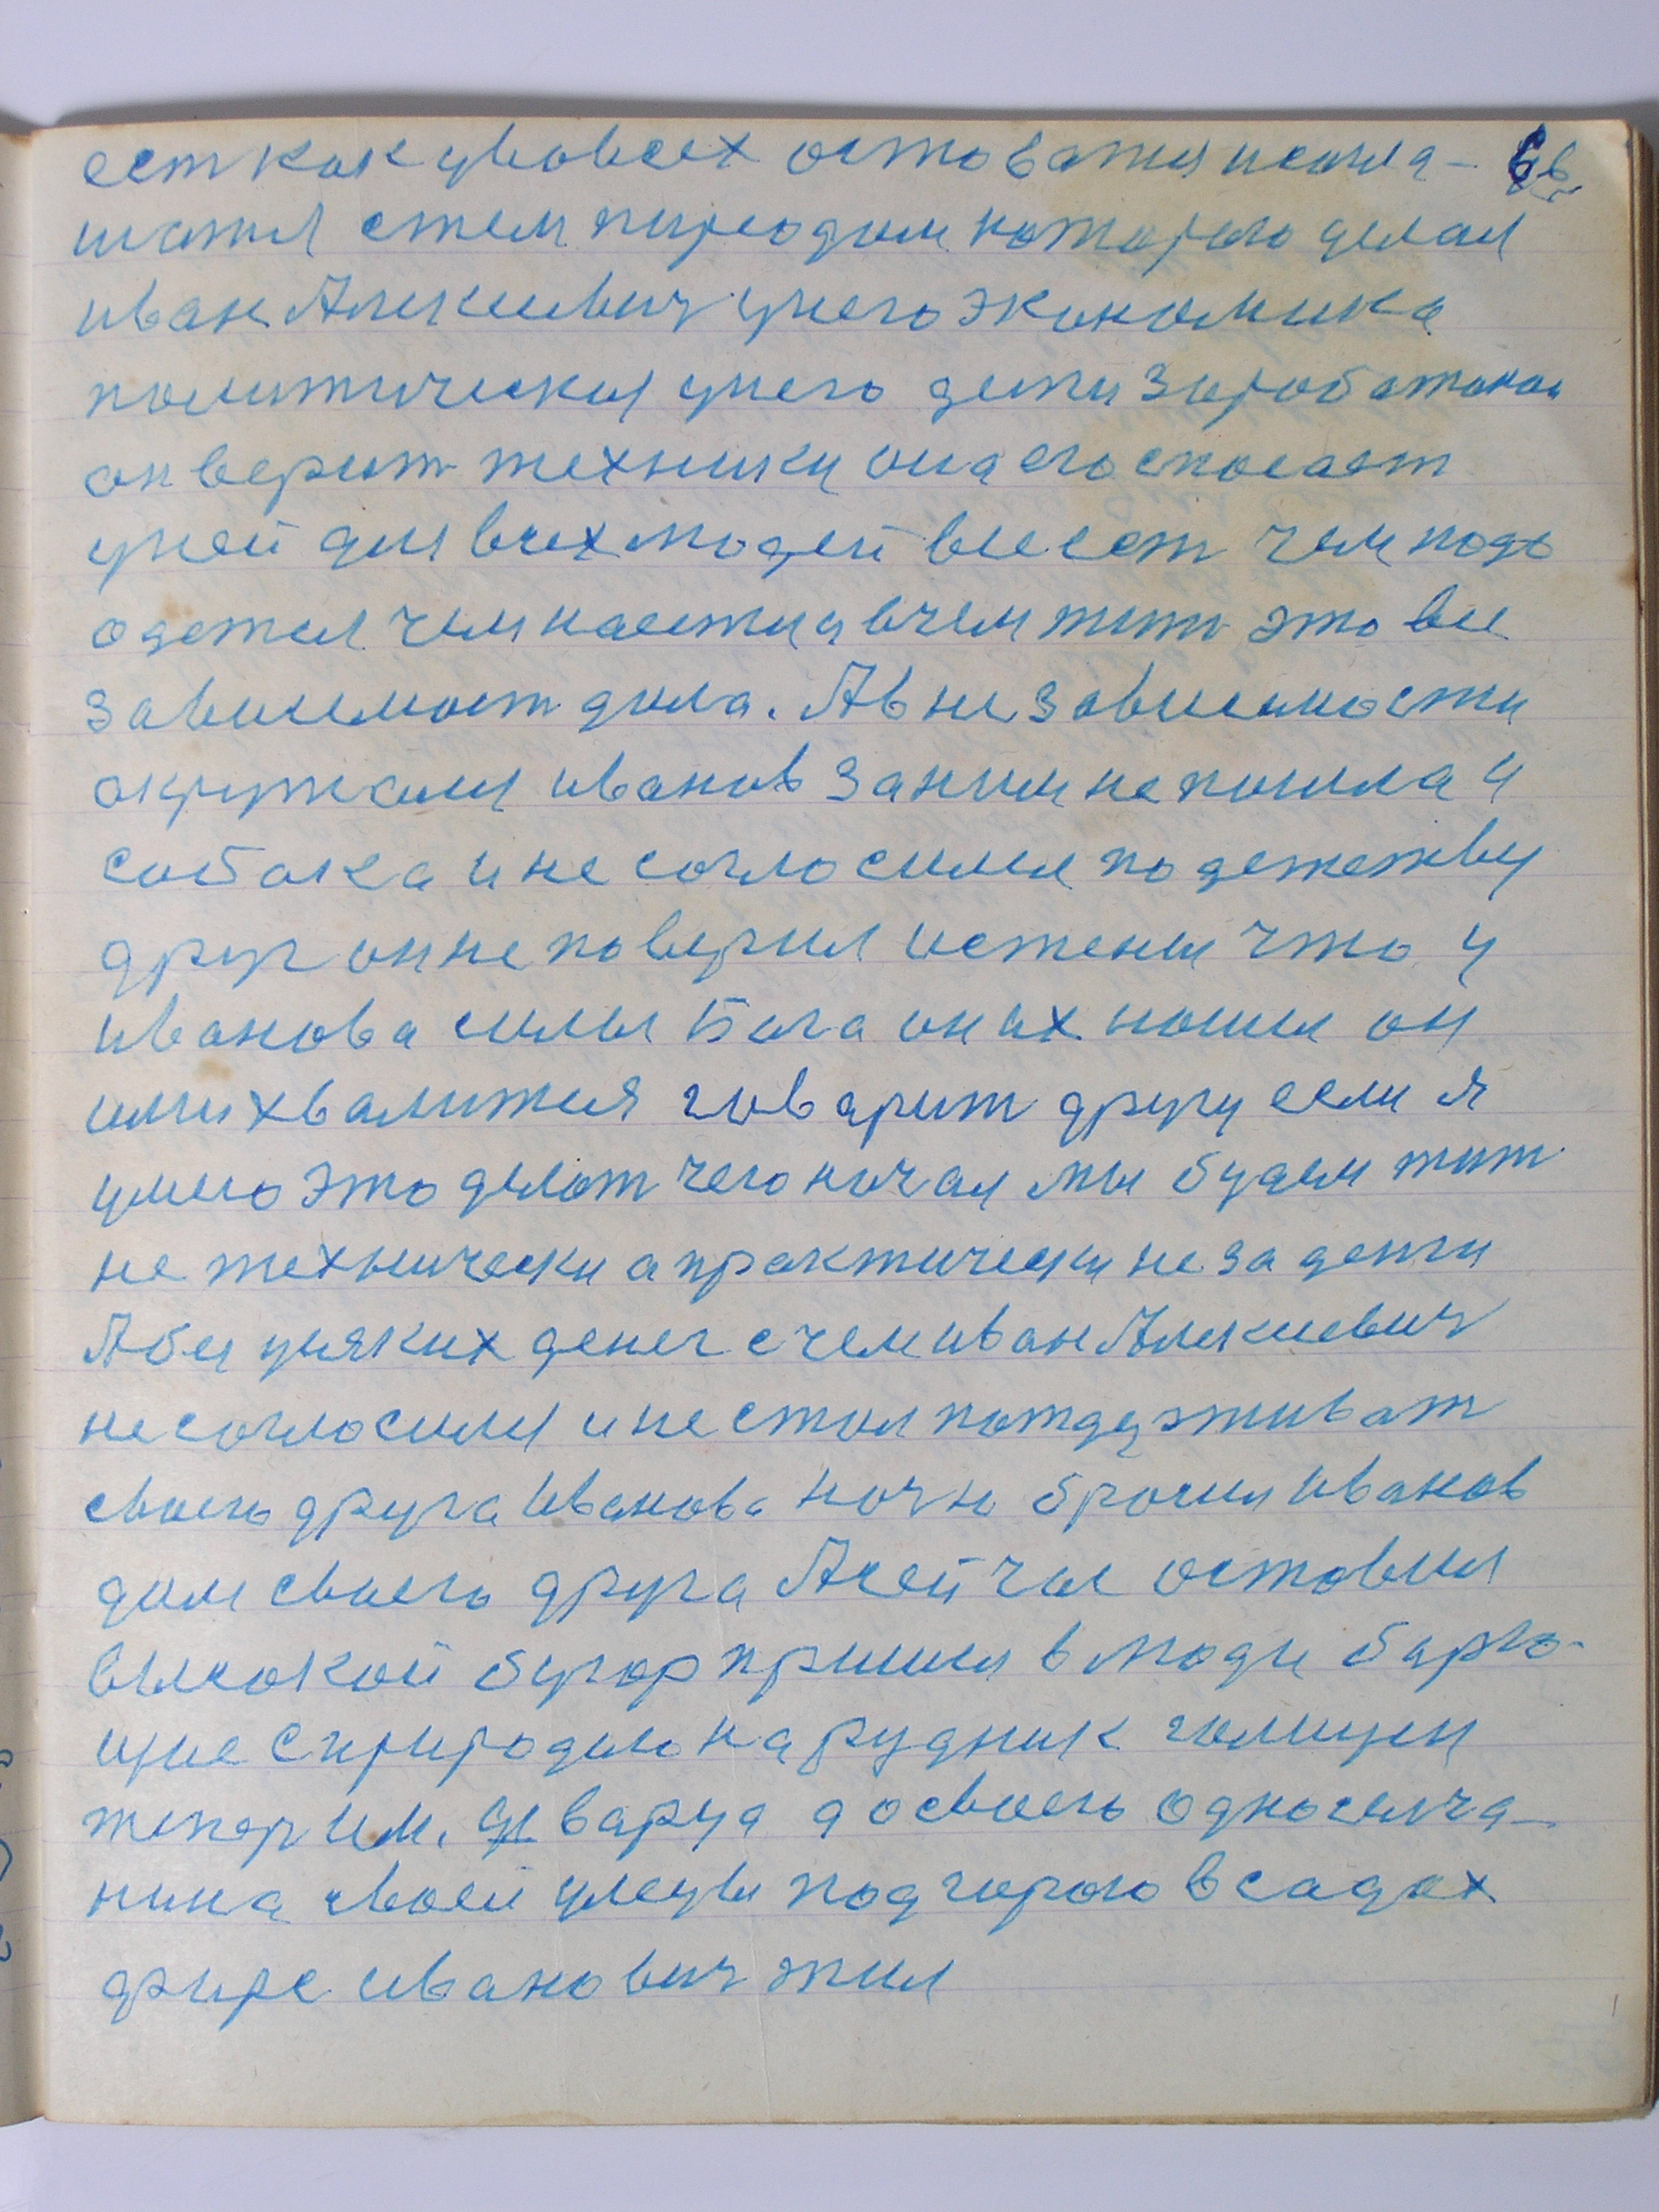 ест как увовсех остоватя исогла- 66
шатя стем пиреодом которого делал
иван Алексеевич унего экономика
политическая унего дети заработаная
он верит технику она его спасает
уней для всех людей все ест чем подо
одется чем наестися вчем жит это все
зависемост дила. Ав не зависемости
окружался иванов за ним не пошла и
собака и не согласился подетежву
друг он не поверил истены что у
иванова силы Бога он их ношол он
ими хвалится говарит другу если я
умею это делат чего ничая мы будем жит
не технически а практически не за денги
Абез уняких денег счем иван Алексеевич
не согласился и не стал потдерживат
своего друга Иванова ночю бросил Иванов
дом своего друга Асейчас оставил
высокой бугор пришол в люди барю-
щие с природою на рудник
тепер им. Я. Сваруа досвоего односелча-
нина своей улецы под горою в садах
иванович жил